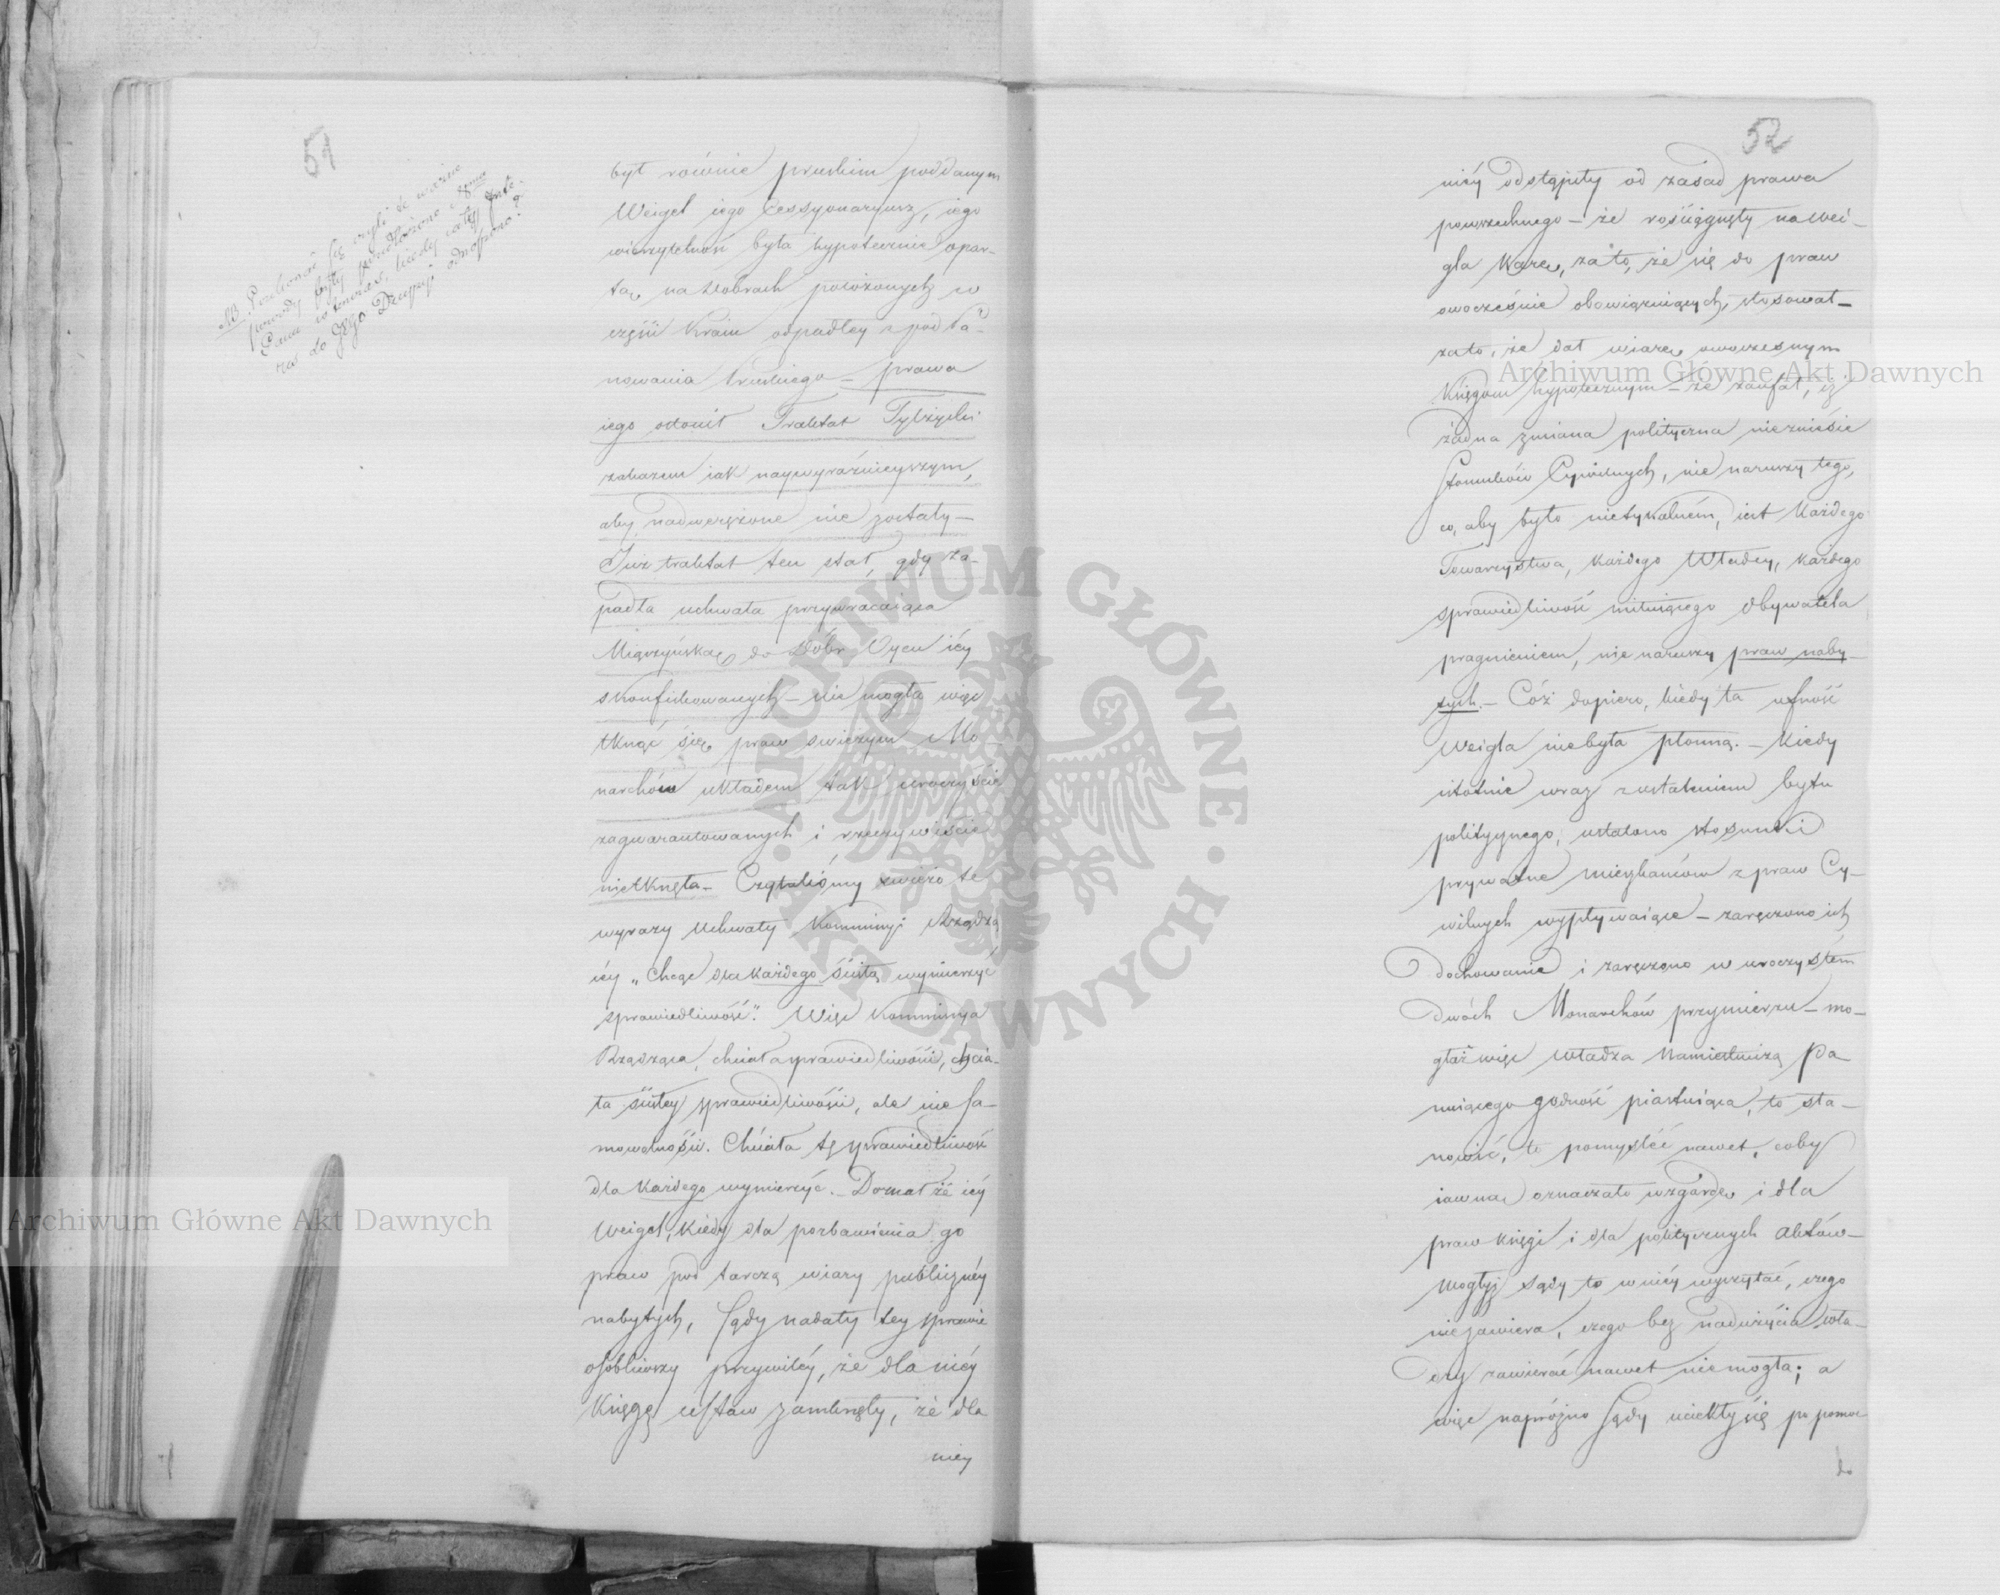 51
NB. Przekonać się czyli te ważne
powody były przełożone
Panu wtenczas, kiedy cały Inte-
res do JEgo Decyzyi odnoszono?
był równie pruskim poddanym
Weigel iego Cessyonaryusz, iego
wierzytelność była hypotecznie opar-
tą na dobrach położonych w
części Kraiu odpadłey z pod Pa-
nowania Pruskiego – prawa
iego osłonił Traktat Tylżycki
zakazem iak naywyraźnieyszym,
aby nadwerężone nie zostały –
Już traktat ten stał, gdy za-
padła uchwała przywracaiąca
Mięrzyńską do Dóbr Oycu iéy
skonfiskowanych – nie mogła więc
tknąć się praw swieżym Mo-
narchów układem tak uroczyście
zagwarantowanych i rzeczywiście
nietknęła – Czytaliśmy swieżo te
wyrazy Uchwały Kommissyi Rządzą
céy „chcąc dla każdego ścisłą wymierzyć
sprawiedliwość." Więc Kommissya
Rządząca, chciała sprawiedliwości, chcia-
ła ścisłey sprawiedliwości, ale nie sa-
mowolności. Chciała tę sprawiedliwość
dla każdego wymierzyć. – Doznał że iéy
Weigel, kiedy dla pozbawienia go
praw pod tarczą wiary publicznéy
nabytych, Sądy nadały tey sprawie
osobliwszy przywiléy, że dla niéy
Księgę ustaw zamknęły, że dla
niey
52
niéy odstąpiły od zasad prawa
powszechnego – że rosciągnęły na Wei-
gla karę, zato, że się do praw
owocześnie obowiązuiących, stosował –
zato, że dał wiarę owoczesnym
Księgom hypotecznym – że zaufał, iż
żadna zmiana polityczna nie zniesie
stosunków Cywilnych, nie naruszy tego,
co, aby było nietykalném, iest każdego
Towarzystwa, każdego Władcy, każdego
sprawiedliwość miłuiącego obywatela
pragnieniem, nie naruszy praw naby-
tych. – Cóż dopiero, kiedy ta ufność
Weigla niebyła płonną. – Kiedy
istotnie wraz z ustaleniem bytu
politycznego, ustalono stosunki
prywatne mieszkańców z praw Cy-
wilnych wypływaiące – zaręczono ich
dochowanie i zaręczono w uroczystém
dwóch Monarchów przymierzu – mo-
głaż więc władza Namiestniczą Pa
nuiącego godność piastuiąca, to sta-
nowić, to pomyśleć nawet, coby
iawną oznaczało wzgardę i dla
praw księgi i dla politycznych aktów –
Mogłyż sądy to w niéy wyczytać, czego
nie zawiera, czego bez nadużycia wła-
dzy zawierać nawet nie mogła; a
więc napróżno Sądy uciekły się po pomoc
do
Archiwum Główne Akt Dawnych
Archiwum Główne Akt Dawnych
ARCHIWUM GŁÓWNE · AKT DAWNYCH ·